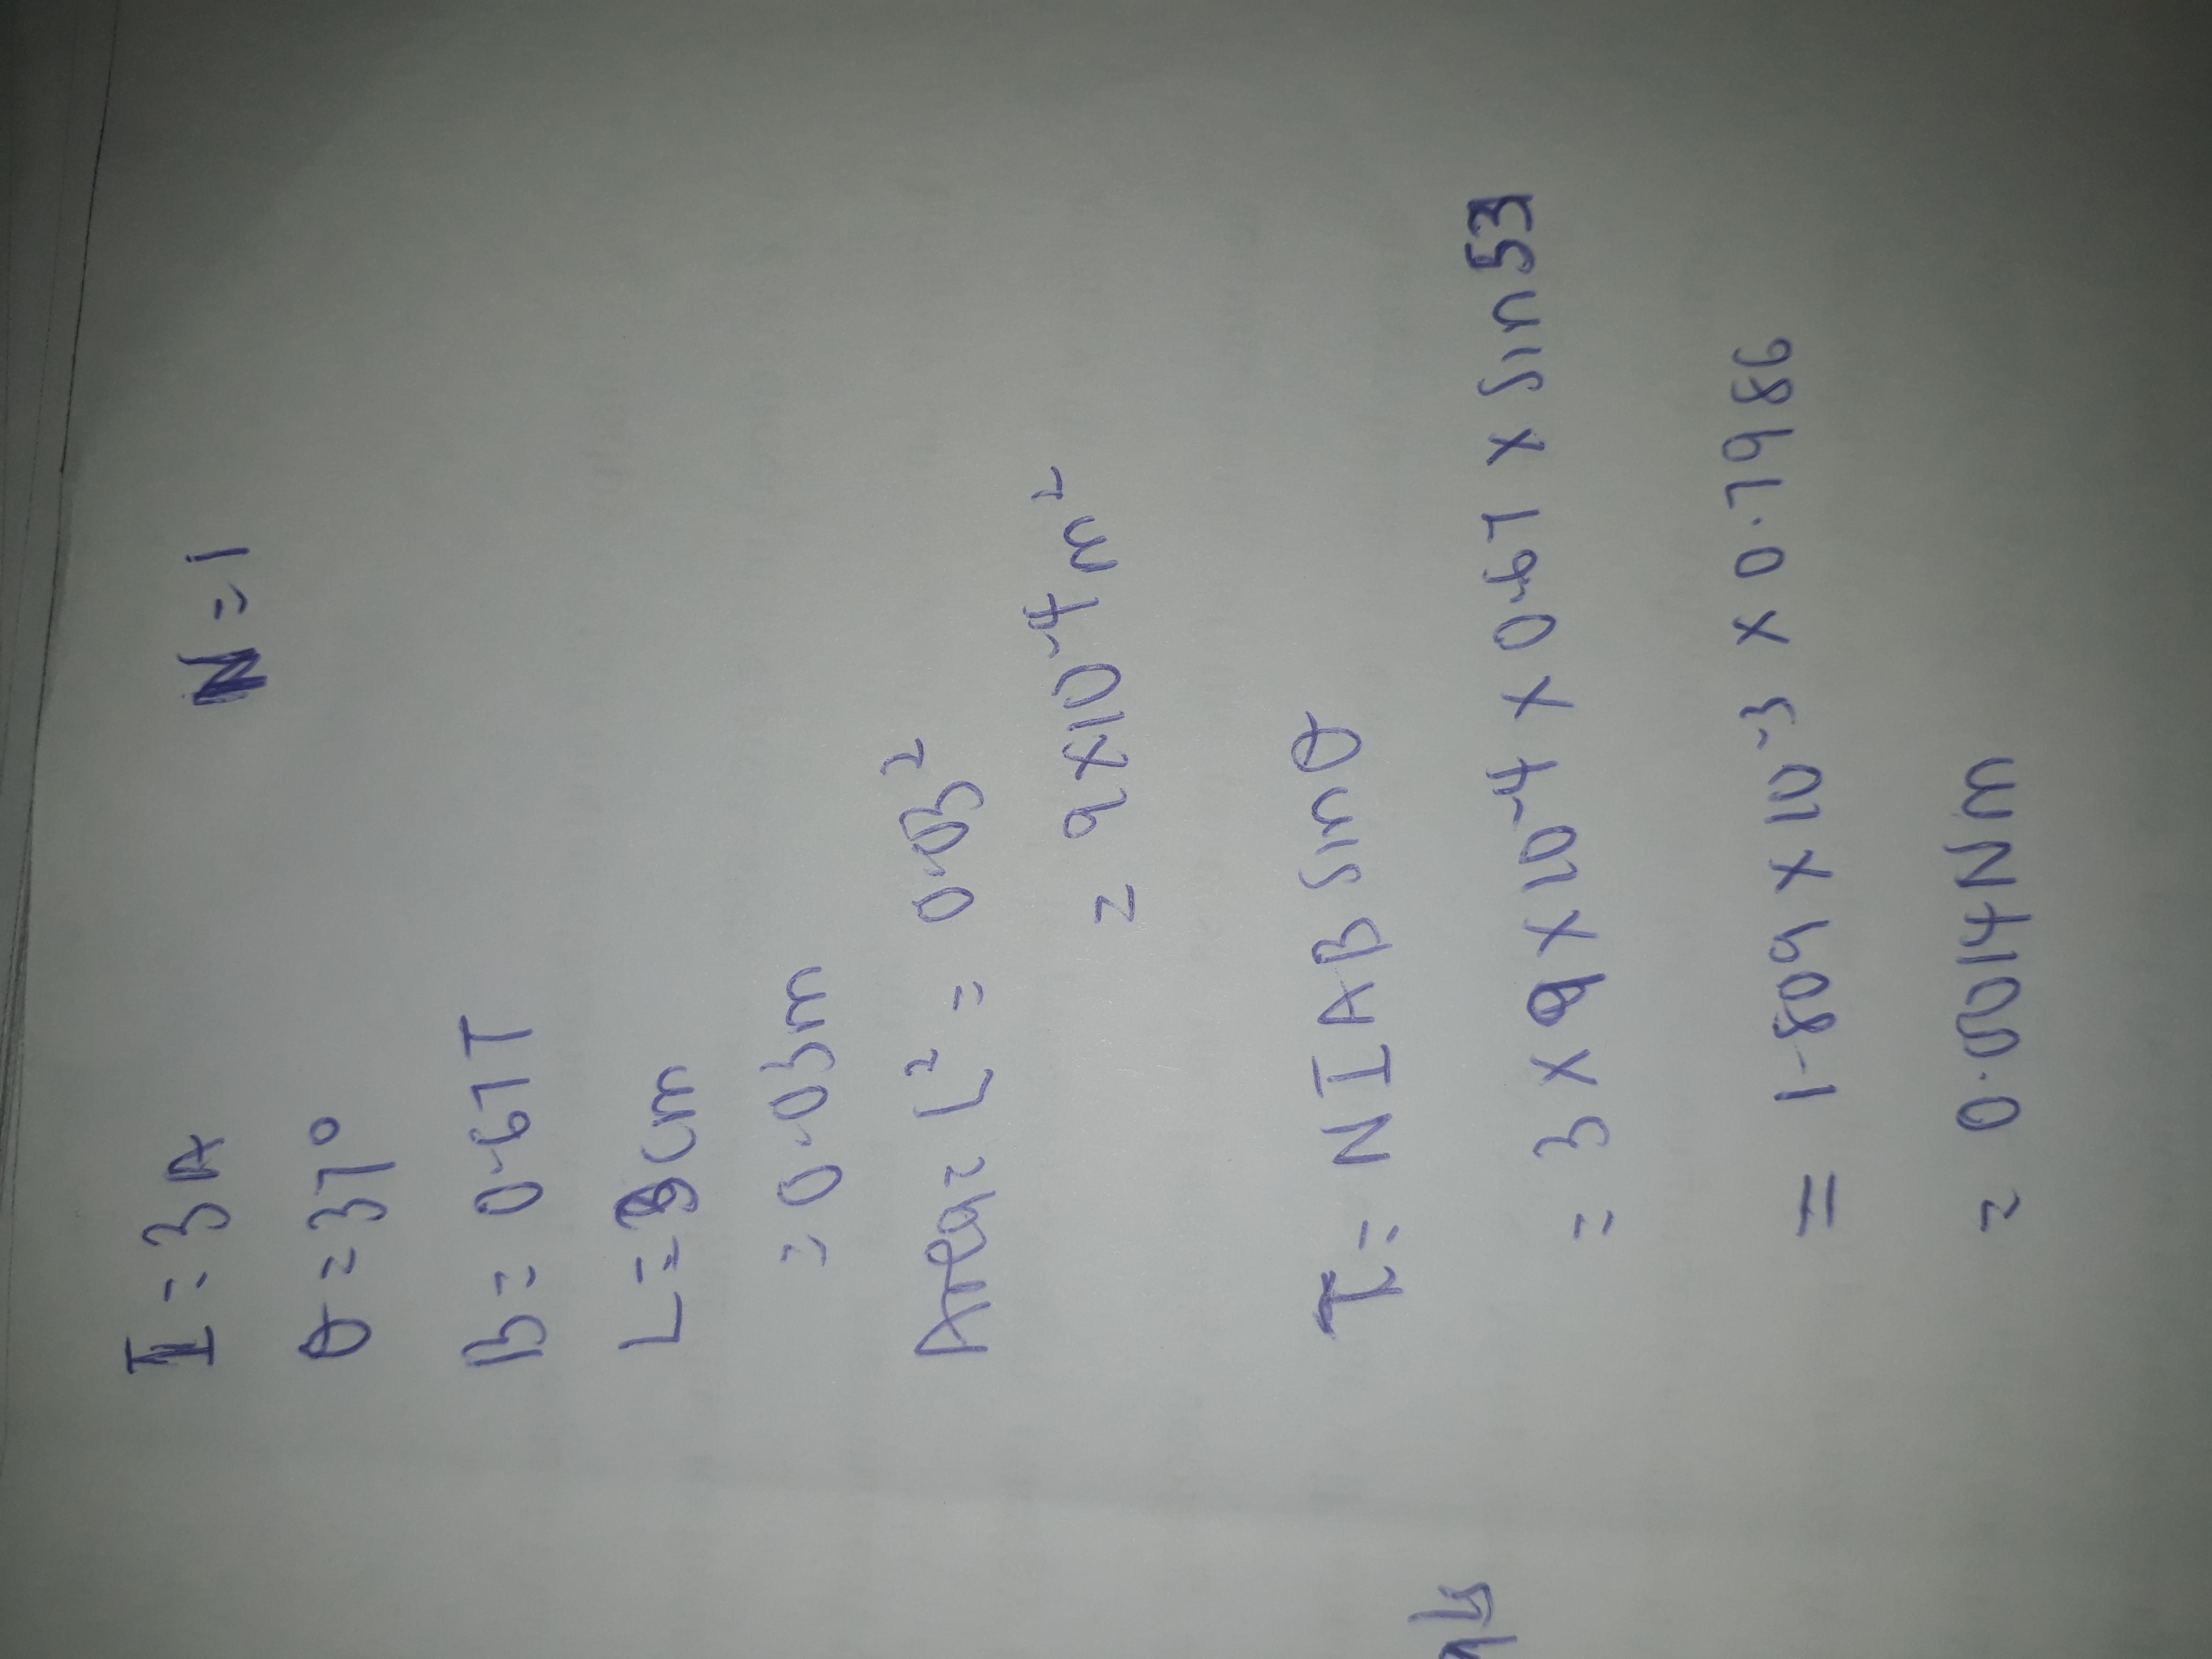 I = 3A N = 1
θ = 37°
B = 0.67T
L = 3cm
= 0.03m
Area = L² = 0.03²
= 9x10⁻⁴m²
τ = NIAB sinθ
= 3 x 9 x 10⁻⁴ x 0.67 x sin53
= 1.809 x 10⁻³ x 0.7986
= 0.0014Nm